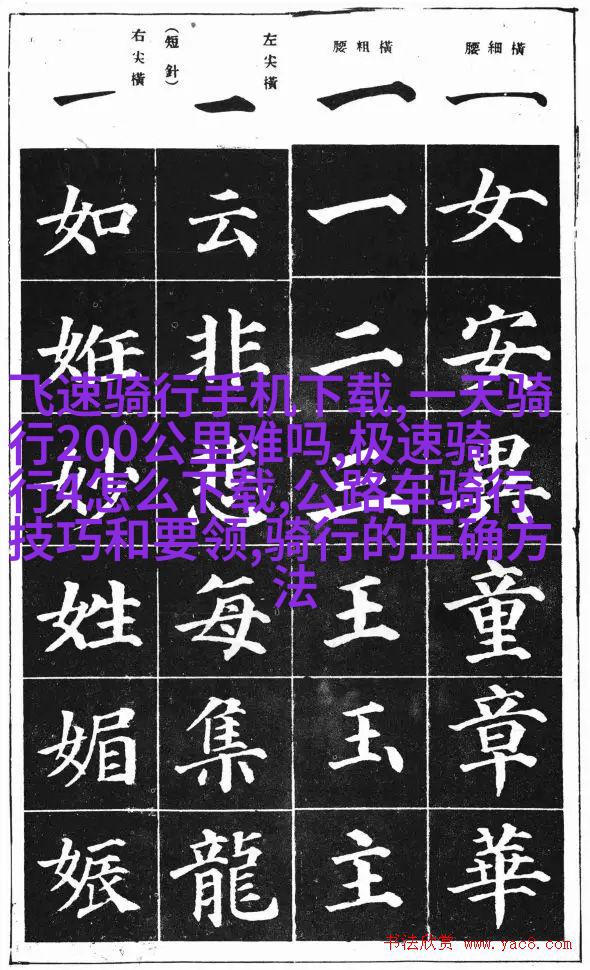 橫細腰
一
女
安
異
童
章
華
橫粗腰
一
一
二
王
玉
主
左尖橫
(短針)
一
云
非
悲
每
集
龍
右尖橫
一
如
姙
妙
姓
媚
娠
飞速骑行手机下载,一天骑
行200公里难吗,极速骑
行4怎么下载,公路车骑行
技巧和要领,骑行的正确方
法
书法欣赏 www.yac8.com